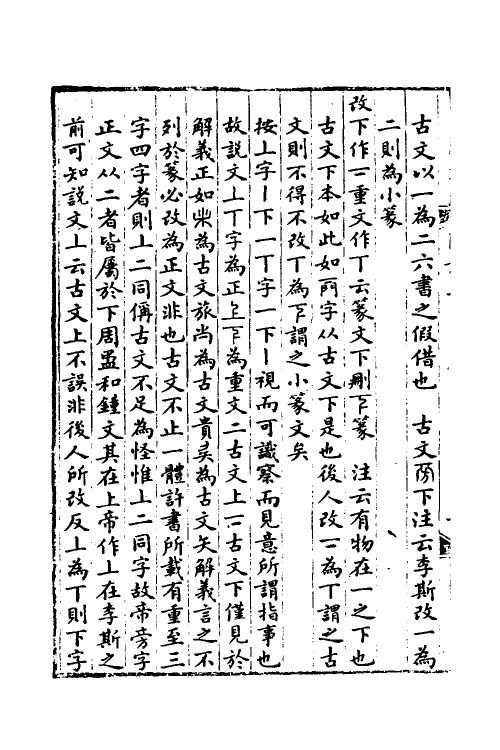 古文以一為二六書之假借也　古文㫄下注云李斯改一為
二則為小篆
改下作𠄟重文作丅云篆文下刪𠄟篆　注云有物在一之下也
古文下本如此如㒳字从古文下是也後人改二為丅謂之古
文則不得不改丅為𠄟謂之小篆文矣
按上字丨下一丅字一下丨視而可識察而見意所謂指事也
故説文上丅字為正𠄞𠄟為重文二古文上二古文下僅見於
解義正如𣥐為古文旅尚為古文貴㚇為古文矢解義言之不
列於篆必改為正文非也古文不止一體許書所載有重至三
字四字者則上二同偁古文不足為怪惟上二同字故帝㫄字
正文从二者皆屬於下周盄和鐘文其在上帝作上在李斯之
前可知説文上云古文上不誤非後人所改反上為丅則下字